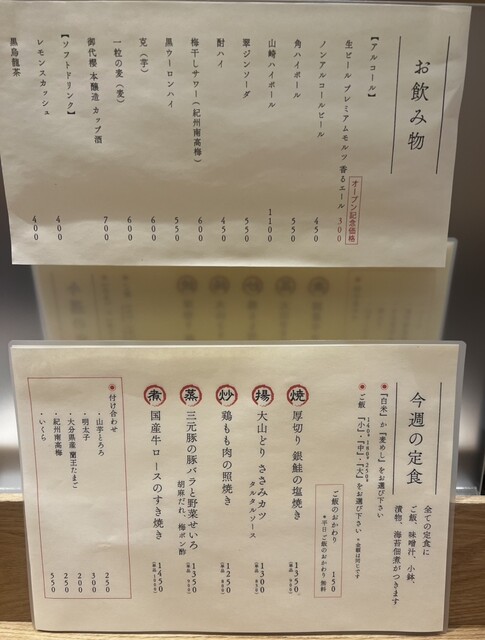 お飲み物
【アルコール】
生ビール プレミアムモルツ 香るエール 300
オープン記念価格
ノンアルコールビール 450
角ハイボール 550
山崎ハイボール 1100
翠ジンソーダ 550
酎ハイ 450
梅干しサワー（紀州南高梅） 600
黒ウーロンハイ 550
克（芋） 600
一粒の麦（麦） 600
御代櫻 本醸造 カップ酒 700
【ソフトドリンク】
レモンスカッシュ 400
黒烏龍茶 400
今週の定食
全ての定食に
ご飯、味噌汁、小鉢、
漬物、海苔佃煮がつきます
「白米」か「麦めし」をお選び下さい
ご飯「小」・「中」・「大」をお選び下さい *金額は同じです
140g 180g 250g
ご飯のおかわり 150
*平日ご飯のおかわり無料
焼 厚切り 銀鮭の塩焼き 1350
揚 大山どり ささみカツ 1300
タルタルソース
炒 鶏もも肉の照焼き 1250
蒸 三元豚の豚バラと野菜せいろ 1350
胡麻だれ、梅ポン酢
煮 国産牛ロースのすき焼き 1450
付け合わせ
・山芋とろろ 250
・明太子 300
・大分県産 蘭王たまご 200
・紀州南高梅 250
・いくら 550